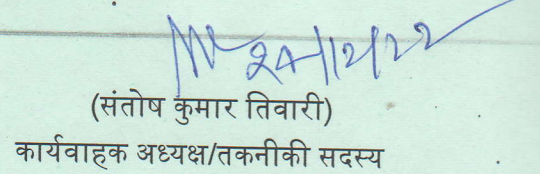 (संतोष कुमार तिवारी)
कार्यवाहक अध्यक्ष/तकनीकी सदस्य